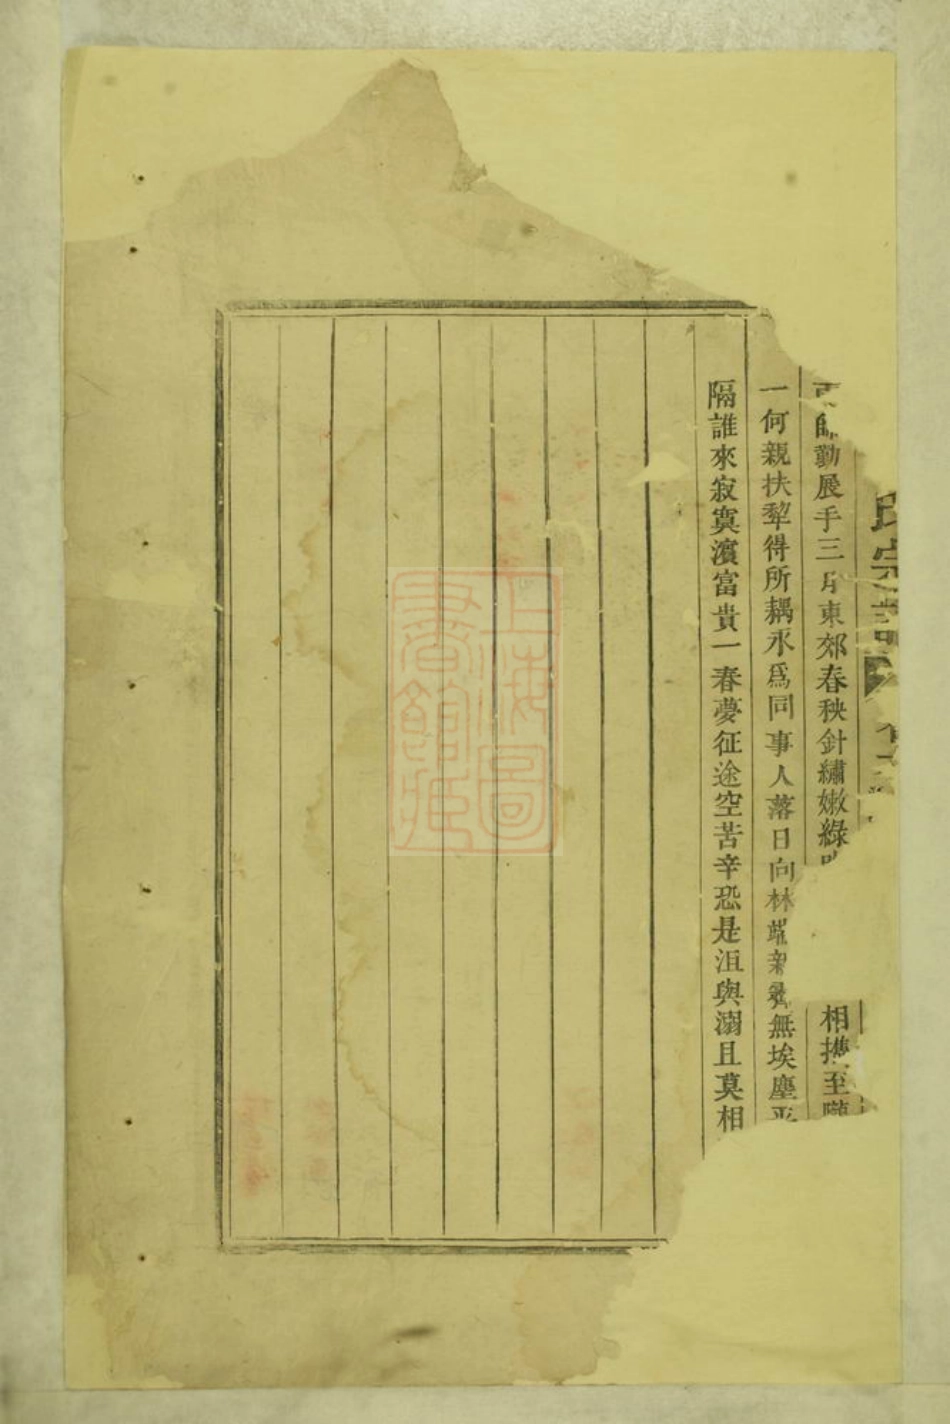 氏宗譜
師勤展手三月東郊春秧針繡嫩綠
相攜至隴
一何親扶犂得所耦永爲同事人落日向林端新無埃塵平
隔誰來寂寞濱富貴一春夢征途空苦辛恐是沮與溺且莫相
上海圖書館藏